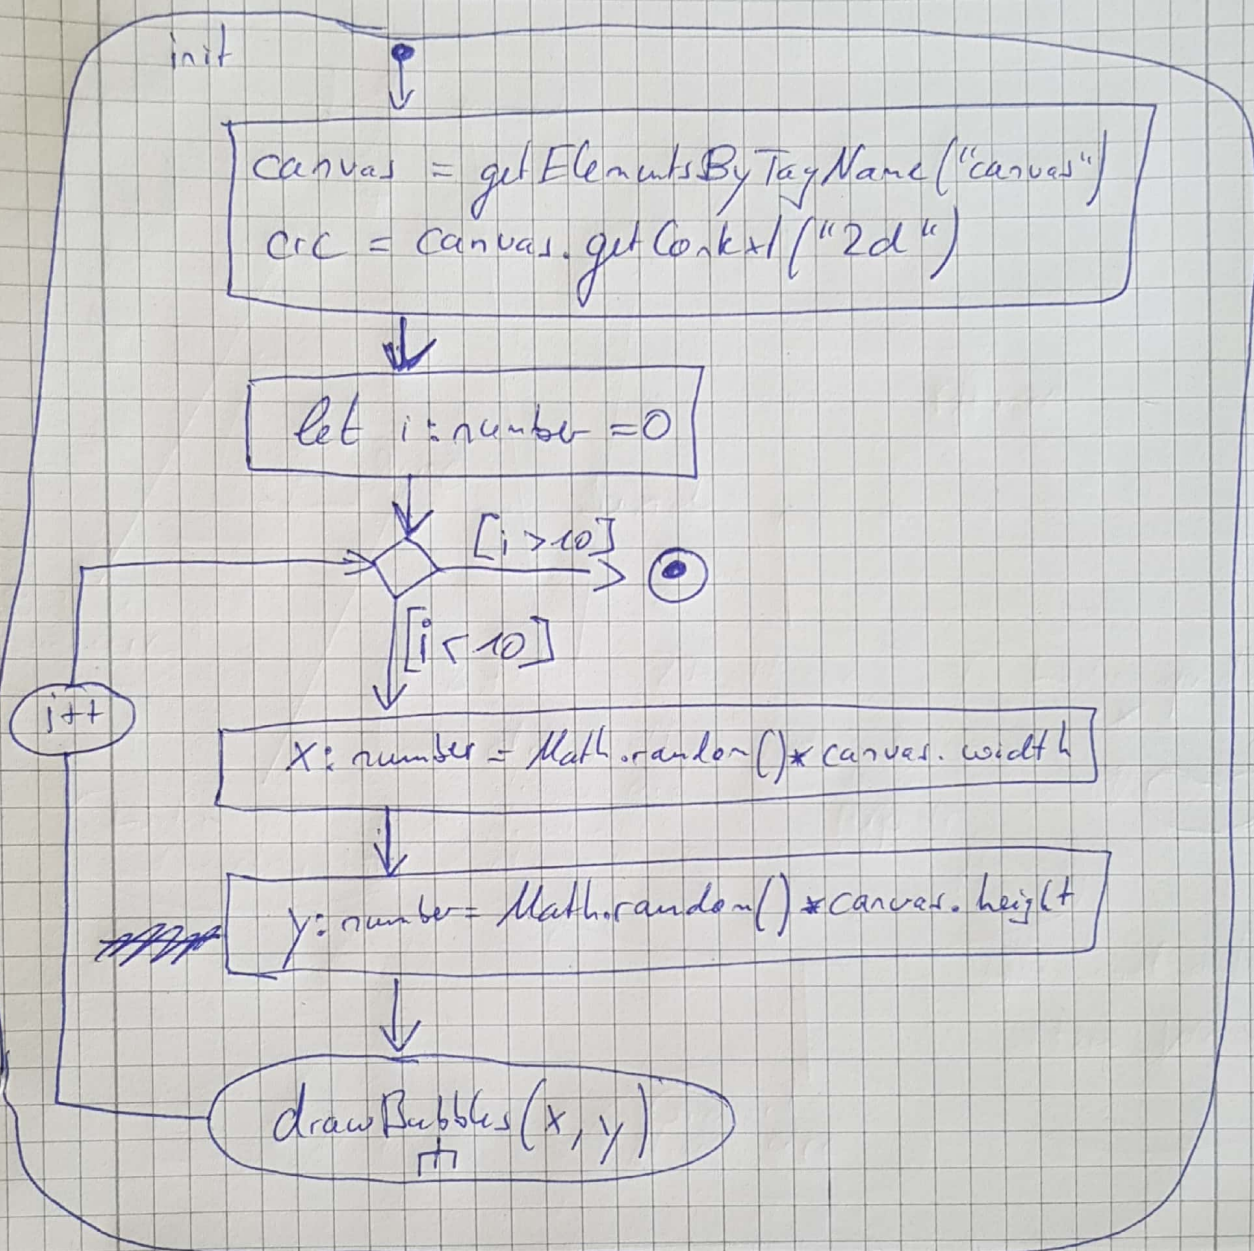 init
canvas = getElementsByTagName("canvas")
crc = canvas.getContext("2d")
let i:number =0
[i >10]
[i < 10]
i++
x: number = Math.random()* canvas.width
y: number= Math.random() *canvas.height
drawBubbles(x, y)